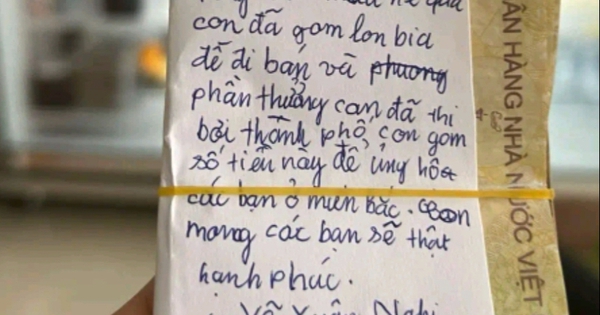 con đã gom lon bia
để đi bán và phuong
phần thưởng con đã thi
bơi thành phố, con gom
số tiền này để ủng hộ
các bạn ở miền bắc. con
mong các bạn sẽ thật
hạnh phúc.
Võ Xuân Nghi
ÂN HÀNG NHÀ NƯỚC VIỆT